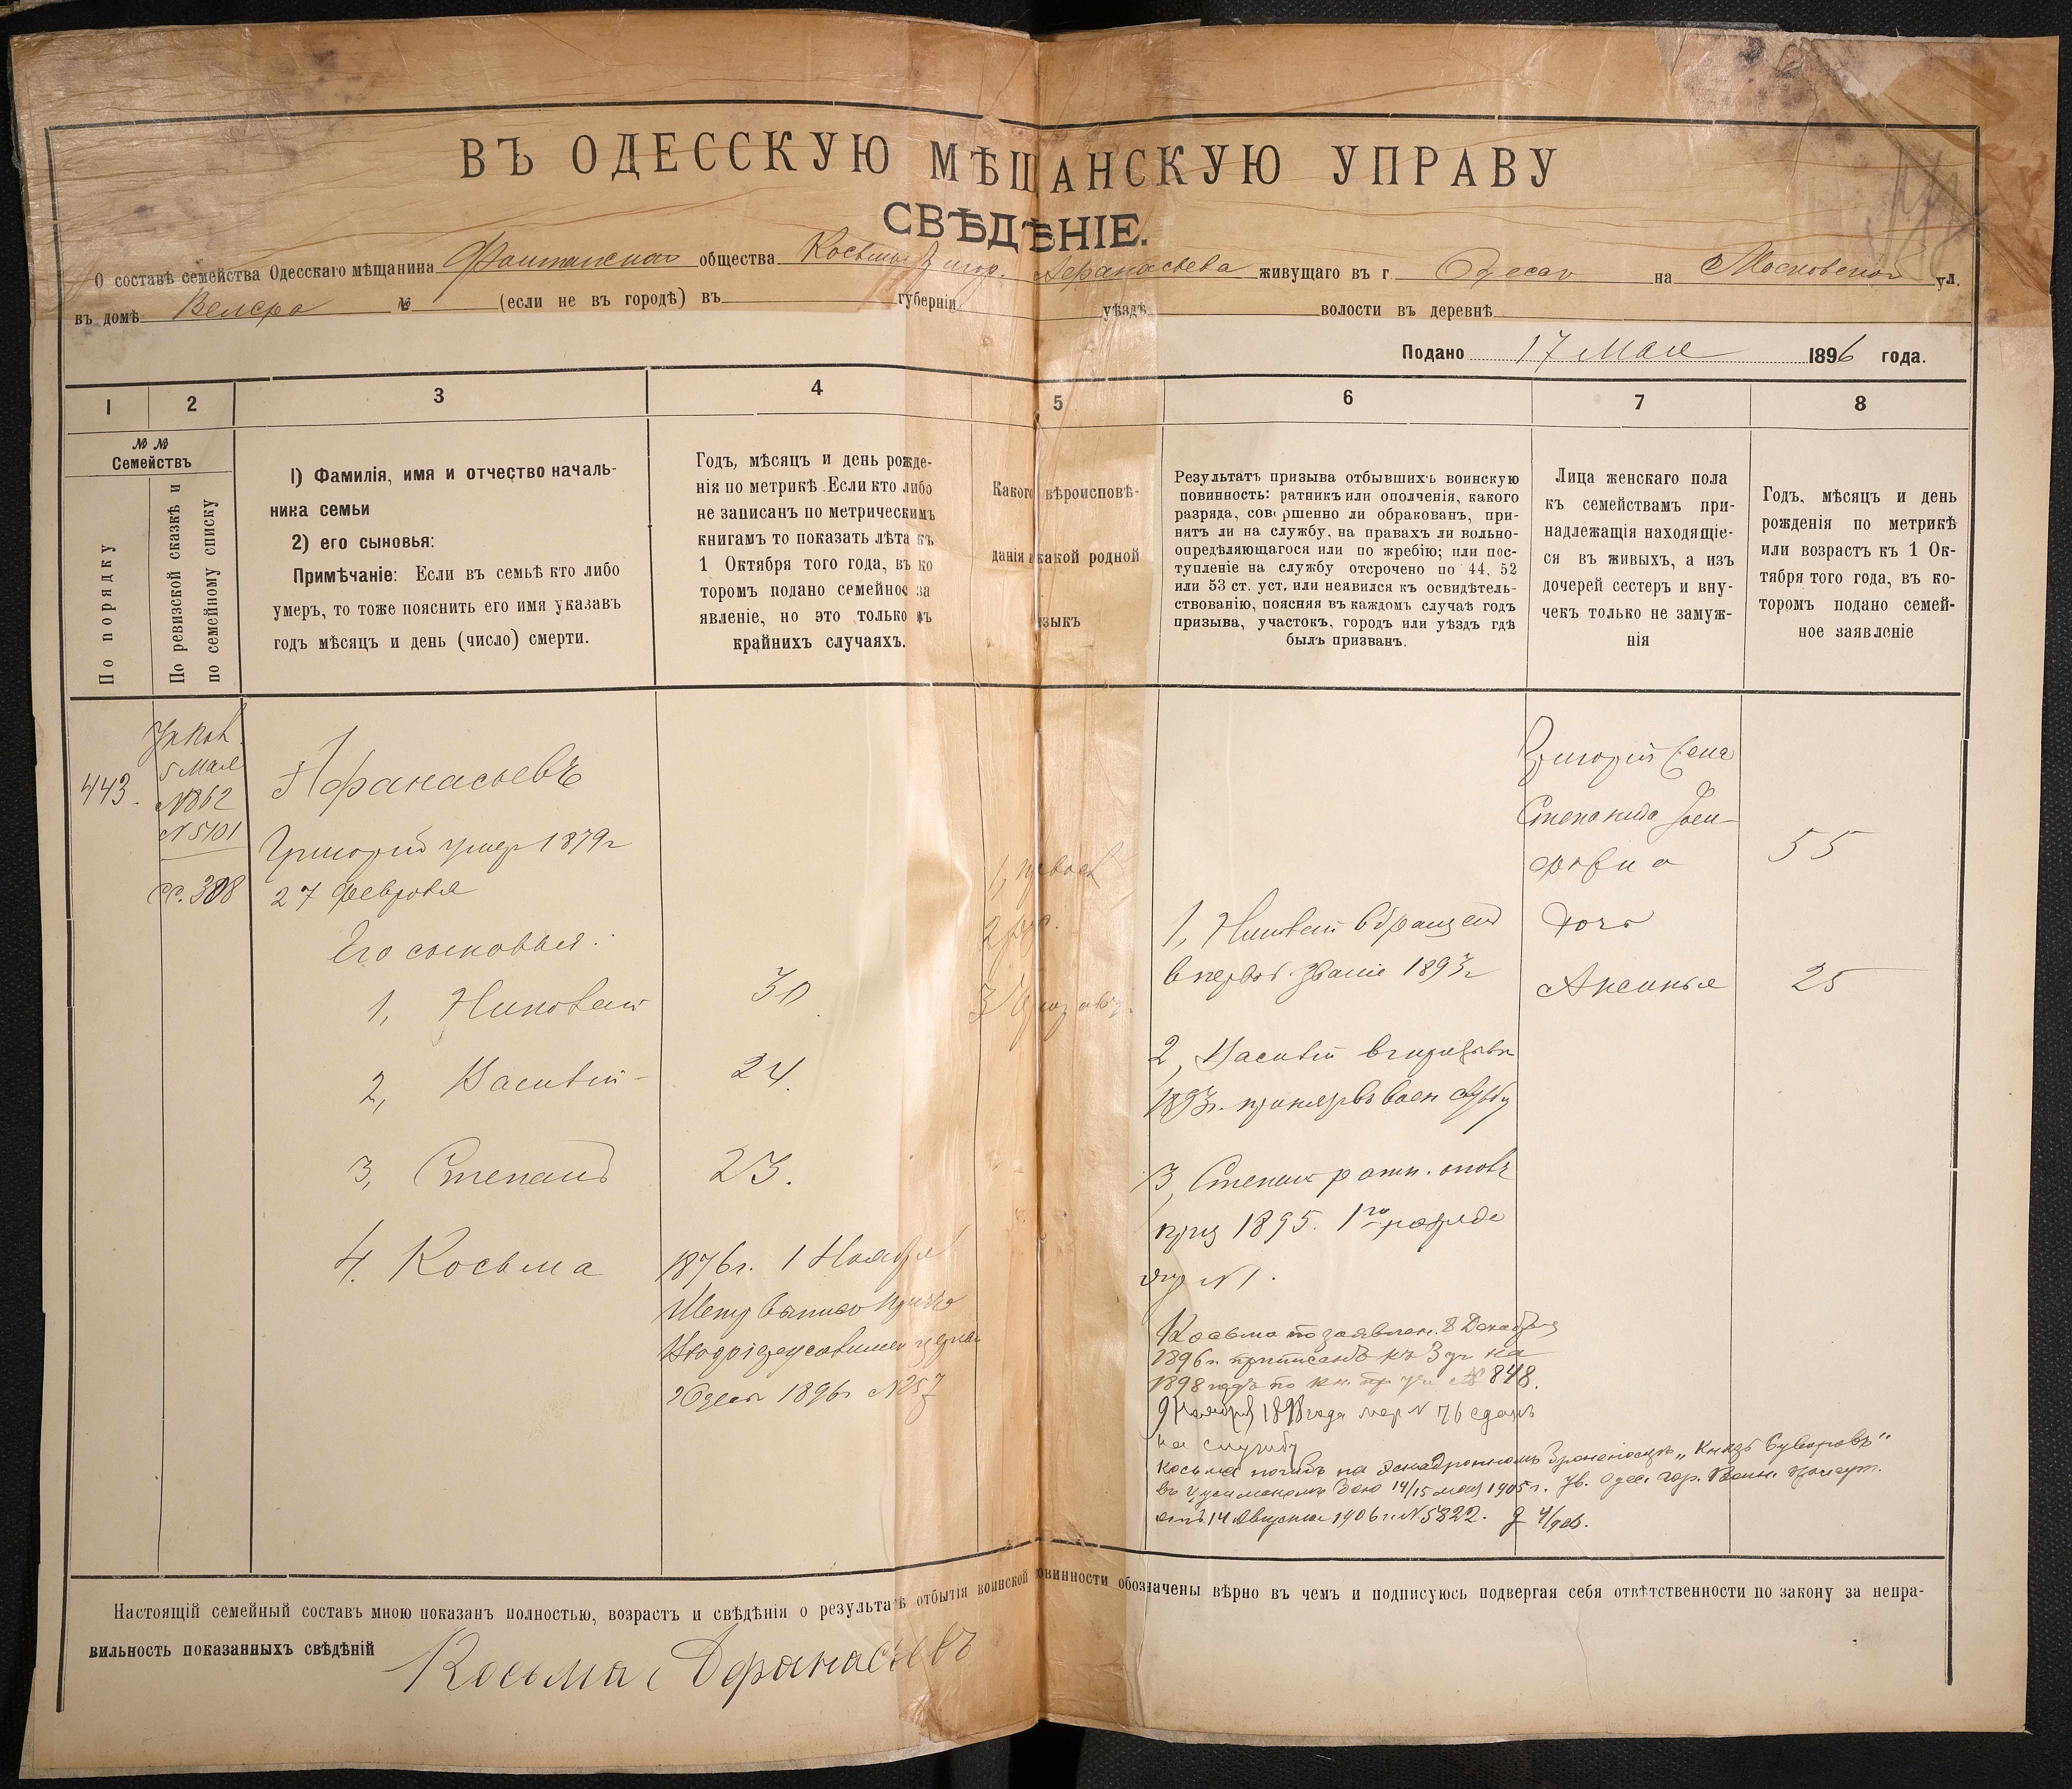 ВЪ ОДЕССКУЮ МѢЩАНСКУЮ УПРАВУ
СВѢДѢНІЕ.
О составѣ семейства Одесскаго мѣщанина Фонтанскаго общества Косьмы Григор. Афанасьева живущаго въ г. Одессѣ на Московской ул.
въ домѣ Велера № (если не въ городѣ) въ губерніи уѣздѣ волости въ деревнѣ
Подано 17 Мая 1896 года.
1 2 3 4 5 6 7 8
№ № Семействъ
По порядку
По ревизской сказкѣ и
по семейному списку
1) Фамилія, имя и отчество началь-
ника семьи
2) его сыновья:
Примѣчаніе: Если въ семьѣ кто либо
умеръ, то тоже пояснить его имя указавъ
годъ мѣсяцъ и день (число) смерти.
Годъ, мѣсяцъ и день рожде-
нія по метрикѣ. Если кто либо
не записанъ по метрическимъ
книгамъ то показать лѣта къ
1 Октября того года, въ ко
торомъ подано семейное за
явленіе, но это только въ
крайнихъ случаяхъ.
Какого вѣроисповѣ-
данія и какой родной
языкъ
Результатъ призыва отбывшихъ воинскую
повинность: ратникъ или ополченія, какого
разряда, совершенно ли обракованъ, при-
нятъ ли на службу, на правахъ ли вольно-
опредѣляющагося или по жребію; или пос-
тупленіе на службу отсрочено по 44, 52
или 53 ст. уст. или неявился къ освидѣтель-
ствованію, поясняя въ каждомъ случаѣ годъ
призыва, участокъ, городъ или уѣздъ гдѣ
былъ призванъ.
Лица женскаго пола
къ семействамъ при-
надлежащія находящіе-
ся въ живыхъ, а изъ
дочерей сестеръ и вну-
чекъ только не замуж-
нія
Годъ, мѣсяцъ и день
рожденія по метрикѣ
или возрастъ къ 1 Ок-
тября того года, въ ко-
торомъ подано семей-
ное заявленіе
443.
5 Мая
№ 862
№ 5101
сс. 308
Афанасьевъ
Григорій умер 1879 г
27 февраля
Его сыновья:
1, Николай 30
2, Василій 24.
3, Степанъ 23.
4. Косьма 1876 г. 1 Ноября
Метр выпись
Одессы 1896 г № 257
1, Николай обращен
в первоб. званіе 1893 г
2, Василій в призывъ
1893 г. принят въ воен службу
3, Степан ратн. опол
приз 1895. 1го разряда
уч № 1.
Косьма по заявлен. 8 Декабря
1896 г. приписанъ къ 3 уч на
1898 годъ по кн. пр уч № 848.
9 Ноября 1898 года жер № 76 сданъ
на службу
Косьма погибъ на эскадронномъ броненосцѣ „Князь Суворовъ"
въ Цусимскомъ бою 14/15 мая 1905 г. Ув. Одес. Гор. Воин. Присут.
отъ 14 Августа 1906 г № 5822.
Григорія жена
Степанида
55
дочь
Аксинья 25
Настоящій семейный составъ мною показанъ полностью, возрастъ и свѣдѣнія о результатѣ отбытія воинской повинности обозначены вѣрно въ чемъ и подписуюсь подвергая себя отвѣтственности по закону за непра-
вильность показанныхъ свѣдѣній Косьма Афанасьевъ